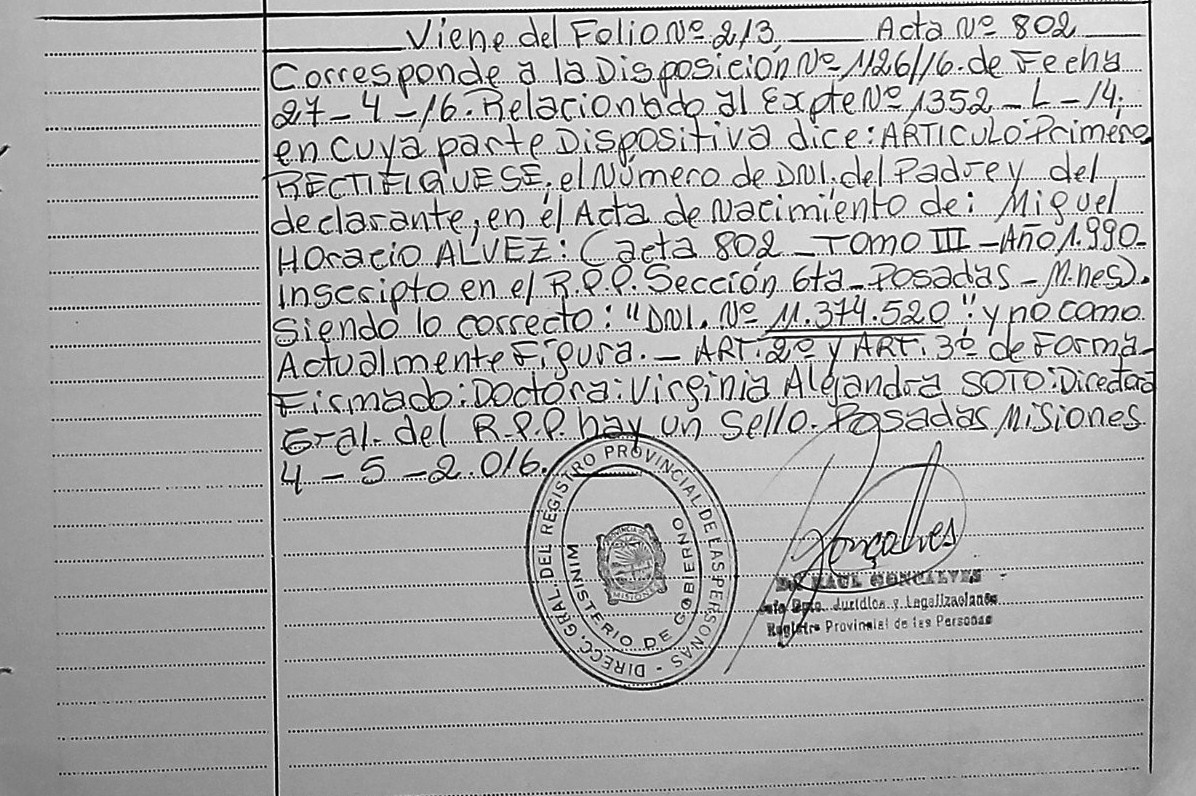 Viene del Folio Nº 213 Acta Nº 802
Corresponde a la Disposición Nº 1126/16. de Fecha
27-4-16. Relacionado al Expte Nº 1352-L-14;
en cuya parte Dispositiva dice: ARTICULO: Primero
RECTIFIQUESE, el Número de DNI. del Padre y del
declarante, en el Acta de Nacimiento de: Miguel
Horacio ALVEZ: (acta 802 - TOMO III - Año 1.990-
Inscripto en el R.P.P. Sección 6ta - Posadas - M.nes).
Siendo lo correcto: "DNI. Nº 11.374.520": y no como
Actualmente Figura. - ART. 2º y ART. 3º de Forma-
Firmado: Doctora: Virginia Alejandra SOTO: Directora
Gral. del R.P.P. hay un sello. Posadas Misiones
4-5-2.016.
DIRECC. GRAL. DEL REGISTRO PROVINCIAL DE LAS PERSONAS -
MINISTERIO DE GOBIERNO
PROVINCIA DE
MISIONES
Gonçalves
RAUL GONCALVES
Dpto. Jurídico y Legalizaciones
Registro Provincial de las Personas